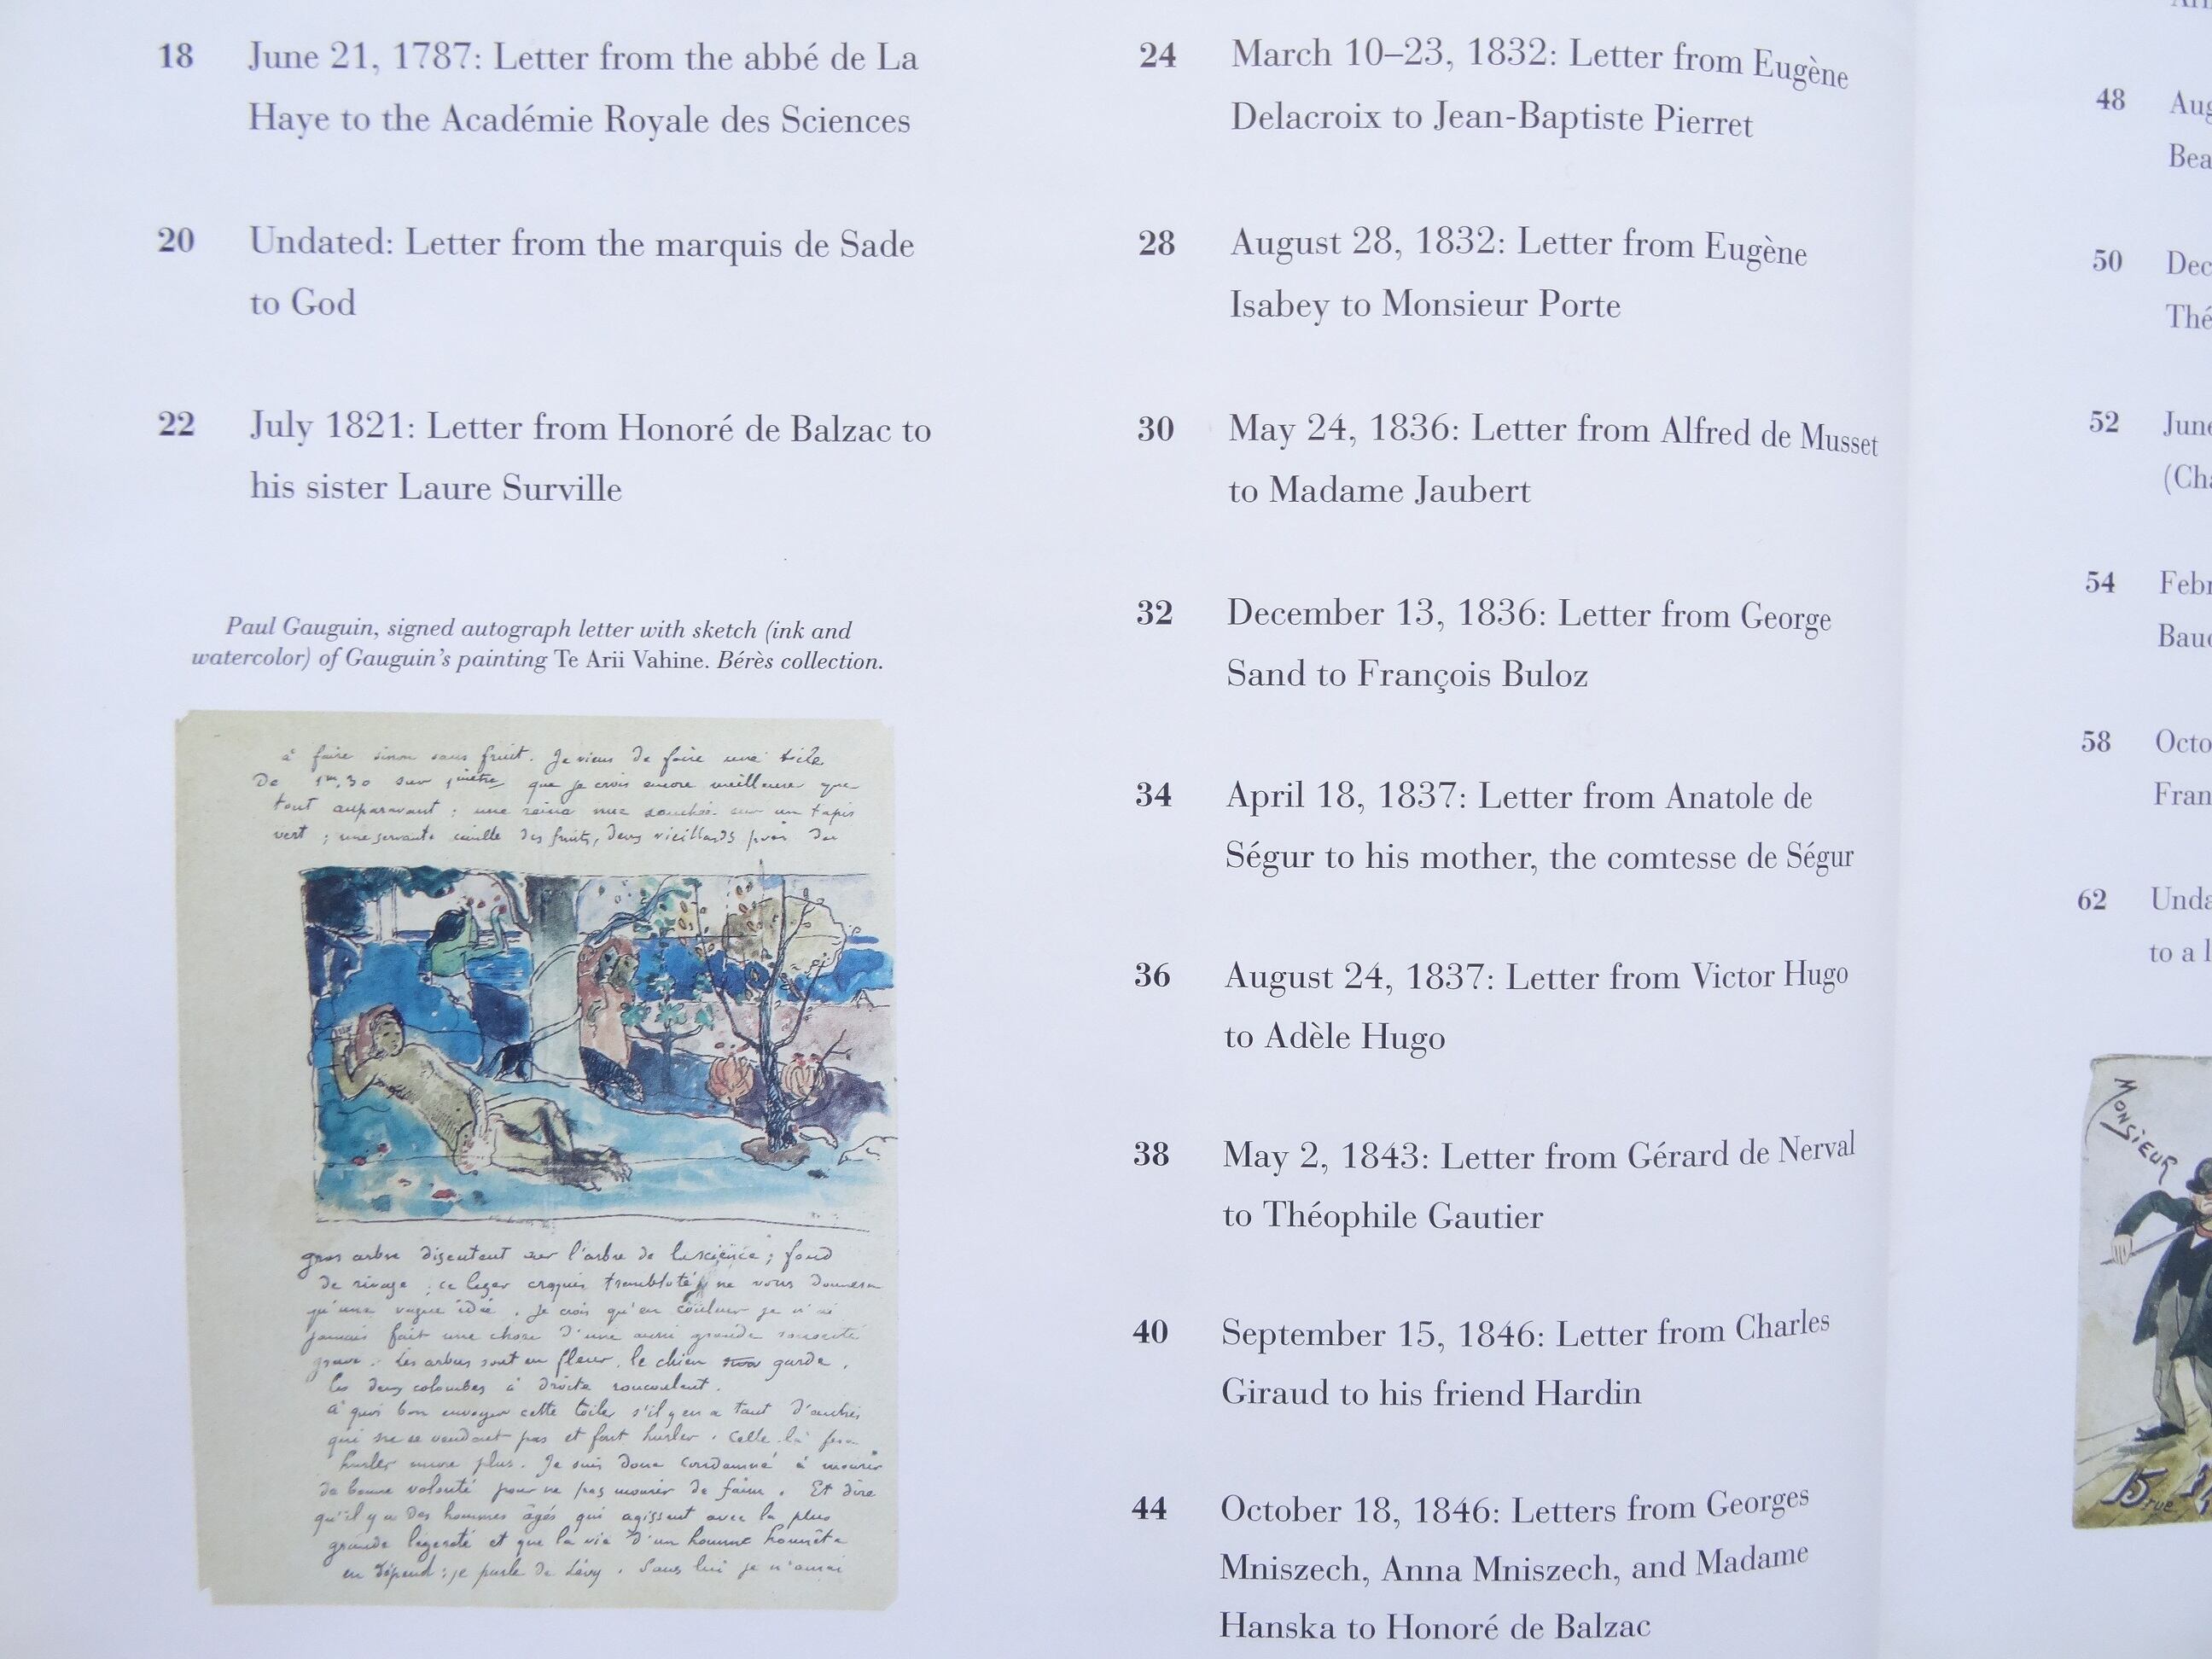 18 June 21, 1787: Letter from the abbé de La
Haye to the Académie Royale des Sciences
20 Undated: Letter from the marquis de Sade
to God
22 July 1821: Letter from Honoré de Balzac to
his sister Laure Surville
Paul Gauguin, signed autograph letter with sketch (ink and
watercolor) of Gauguin's painting Te Arii Vahine. Bérès collection.
à faire sinon sans fruit. Je viens de faire une toile
De 1m,30 sur 1 mètre que je crois encore meilleure que
tout auparavant : une reine nue couchée sur un tapis
vert ; une servante cueille des fruits, deux vieillards près du
gros arbre discutent sur l'arbre de la science ; fond
de rivage ; ce léger croquis tremblotté ne vous donnera
qu'une vague idée. Je crois qu'en couleur je n'ai
jamais fait une chose d'une aussi grande sonorité
grave. Les arbres sont en fleur, le chien garde,
les deux colombes à droite roucoulent.
à quoi bon envoyer cette toile s'il y en a tant d'autres
qui ne se vendent pas et font hurler. Celle là fera
hurler encore plus. Je suis donc condamné à mourir
de bonne volonté pour ne pas mourir de faim. Et dire
qu'il y a des hommes âgés qui agissent avec la plus
grande légereté et que la vie d'un homme honnête
en dépend : je parle de Lévy. Sans lui je n'aurai
24 March 10–23, 1832: Letter from Eugène
Delacroix to Jean-Baptiste Pierret
28 August 28, 1832: Letter from Eugène
Isabey to Monsieur Porte
30 May 24, 1836: Letter from Alfred de Musset
to Madame Jaubert
32 December 13, 1836: Letter from George
Sand to François Buloz
34 April 18, 1837: Letter from Anatole de
Ségur to his mother, the comtesse de Ségur
36 August 24, 1837: Letter from Victor Hugo
to Adèle Hugo
38 May 2, 1843: Letter from Gérard de Nerval
to Théophile Gautier
40 September 15, 1846: Letter from Charles
Giraud to his friend Hardin
44 October 18, 1846: Letters from Georges
Mniszech, Anna Mniszech, and Madame
Hanska to Honoré de Balzac
48 Aug
Bea
50 Dec
Thé
52 June
(Cha
54 Febr
Baud
58 Octo
Fran
62 Unda
to a l
MONSIEUR
15 rue